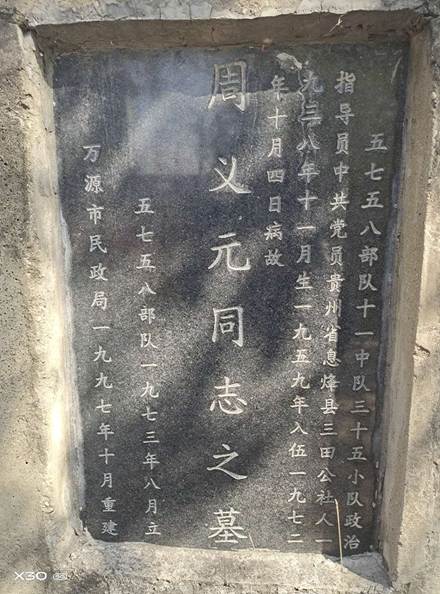 五七五八部队十一中队三十五小队政治
指导员中共党员贵州省息烽县三田公社人一
九三八年十一月生一九五九年入伍一九七二
年十月四日病故
周义元同志之墓
五七五八部队一九七三年八月立
万源市民政局一九九七年十月重建
X30